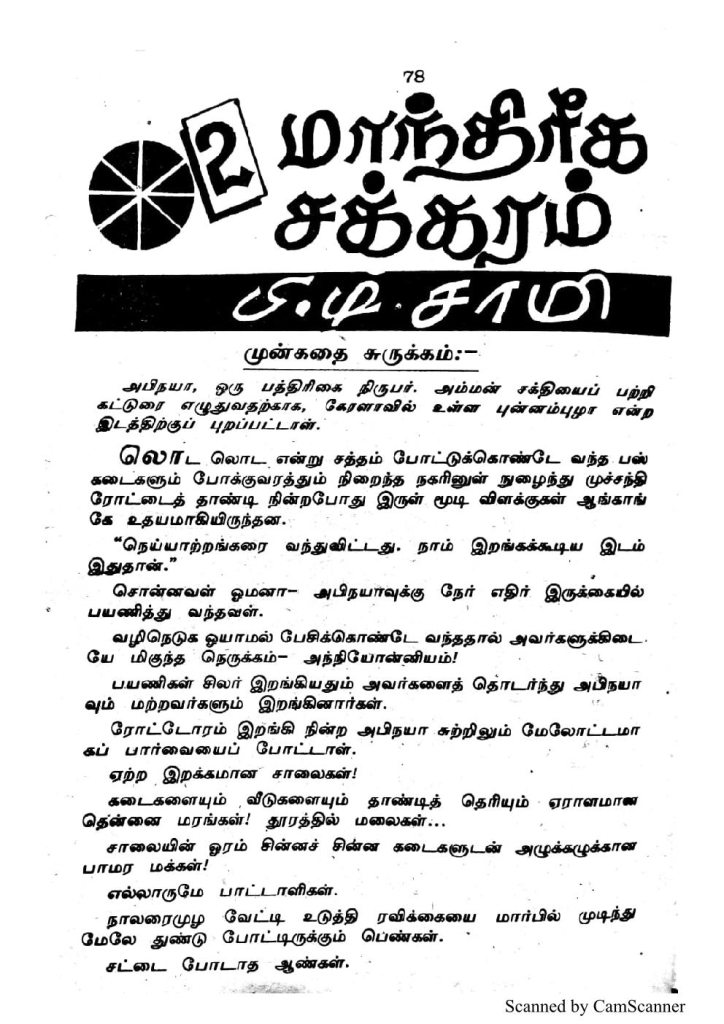 78
2 மாந்திரீக
சக்கரம்
பி.டி.சாமி
முன்கதை சுருக்கம்:-
அபிநயா, ஒரு பத்திரிகை நிருபர். அம்மன் சக்தியைப் பற்றி
கட்டுரை எழுதுவதற்காக, கேரளாவில் உள்ள புன்னம்புழா என்ற
இடத்திற்குப் புறப்பட்டாள்.
லொட லொட என்று சத்தம் போட்டுக்கொண்டே வந்த பஸ்
கடைகளும் போக்குவரத்தும் நிறைந்த நகரினுள் நுழைந்து முச்சந்தி
ரோட்டைத் தாண்டி நின்றபோது இருள் மூடி விளக்குகள் ஆங்காங்
கே உதயமாகியிருந்தன.
“நெய்யாற்றங்கரை வந்துவிட்டது. நாம் இறங்கக்கூடிய இடம்
இதுதான்.”
சொன்னவள் ஓமனா- அபிநயாவுக்கு நேர் எதிர் இருக்கையில்
பயணித்து வந்தவள்.
வழிநெடுக ஓயாமல் பேசிக்கொண்டே வந்ததால் அவர்களுக்கிடை
யே மிகுந்த நெருக்கம்- அந்நியோன்னியம்!
பயணிகள் சிலர் இறங்கியதும் அவர்களைத் தொடர்ந்து அபிநயா
வும் மற்றவர்களும் இறங்கினார்கள்.
ரோட்டோரம் இறங்கி நின்ற அபிநயா சுற்றிலும் மேலோட்டமா
கப் பார்வையைப் போட்டாள்.
ஏற்ற இறக்கமான சாலைகள்!
கடைகளையும் வீடுகளையும் தாண்டித் தெரியும் ஏராளமான
தென்னை மரங்கள்! தூரத்தில் மலைகள்...
சாலையின் ஓரம் சின்னச் சின்ன கடைகளுடன் அழுக்கழுக்கான
பாமர மக்கள்!
எல்லாருமே பாட்டாளிகள்.
நாலரைமுழ வேட்டி உடுத்தி ரவிக்கையை மார்பில் முடிந்து
மேலே துண்டு போட்டிருக்கும் பெண்கள்.
சட்டை போடாத ஆண்கள்.
Scanned by CamScanner